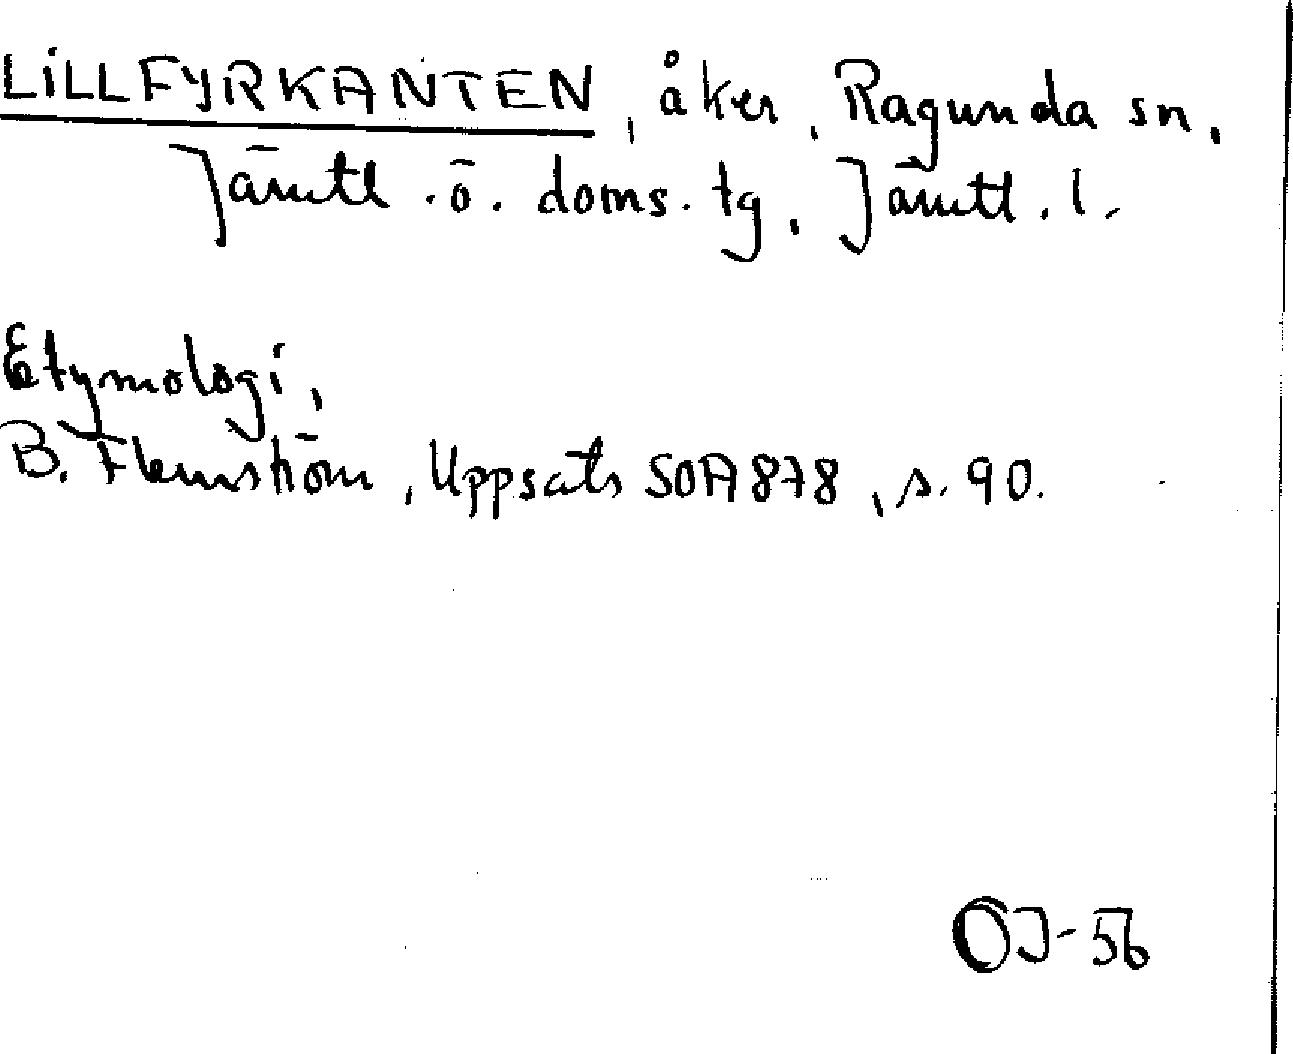 LILLFYRKANTEN, åker, Ragunda sn,
Jämtl. ö. doms. tg, Jämtl. l.
Etymologi,
B. Flemström, Uppsats SOA 878, s. 90.
OJ-56